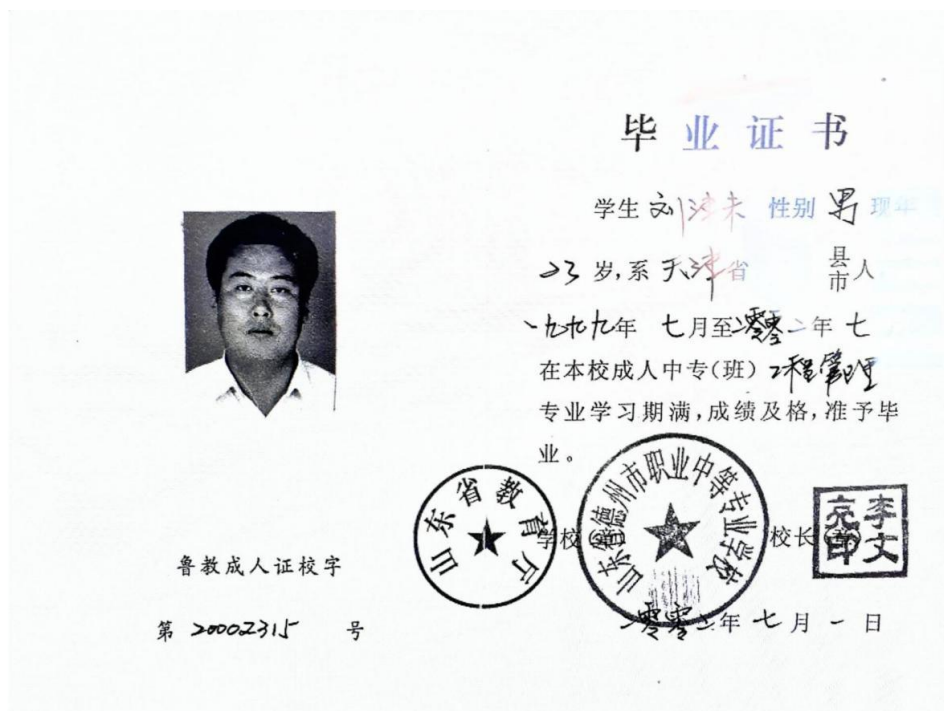 毕业证书
学生 刘津来 性别 男 现年
23 岁，系 天津省 县市人
一九九九年 七月至二零零二年 七
在本校成人中专(班) 工程管理
专业学习期满，成绩及格，准予毕
业。
山东省教育厅
山东省德州市职业中等专业学校
学校 校长(章)
李文亮印
二零零二年 七 月 一 日
鲁教成人证校字
第 20002315 号